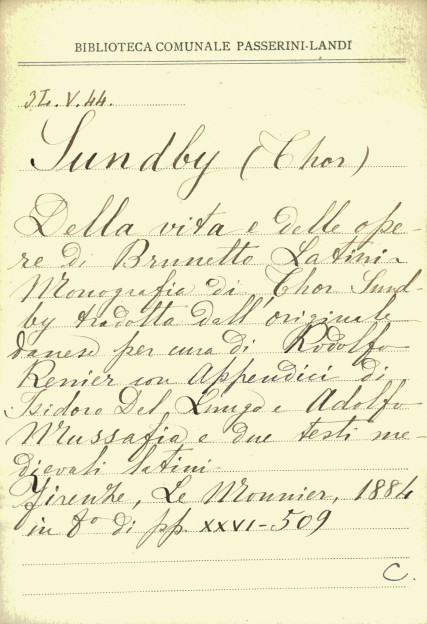 BIBLIOTECA COMUNALE PASSERINI-LANDI
3L.V.44.
Sundby (Thor)
Della vita e delle ope-
re di Brunetto Latini -
Monografia di Thor Sund-
by tradotta dall'originale
danese per cura di Rodolfo
Renier con Appendici di
Isidoro Del Lungo e Adolfo
Mussafia e due testi me-
dievali latini
Firenze, Le Monnier, 1884
in 8º di pp. XXVI-509
C.